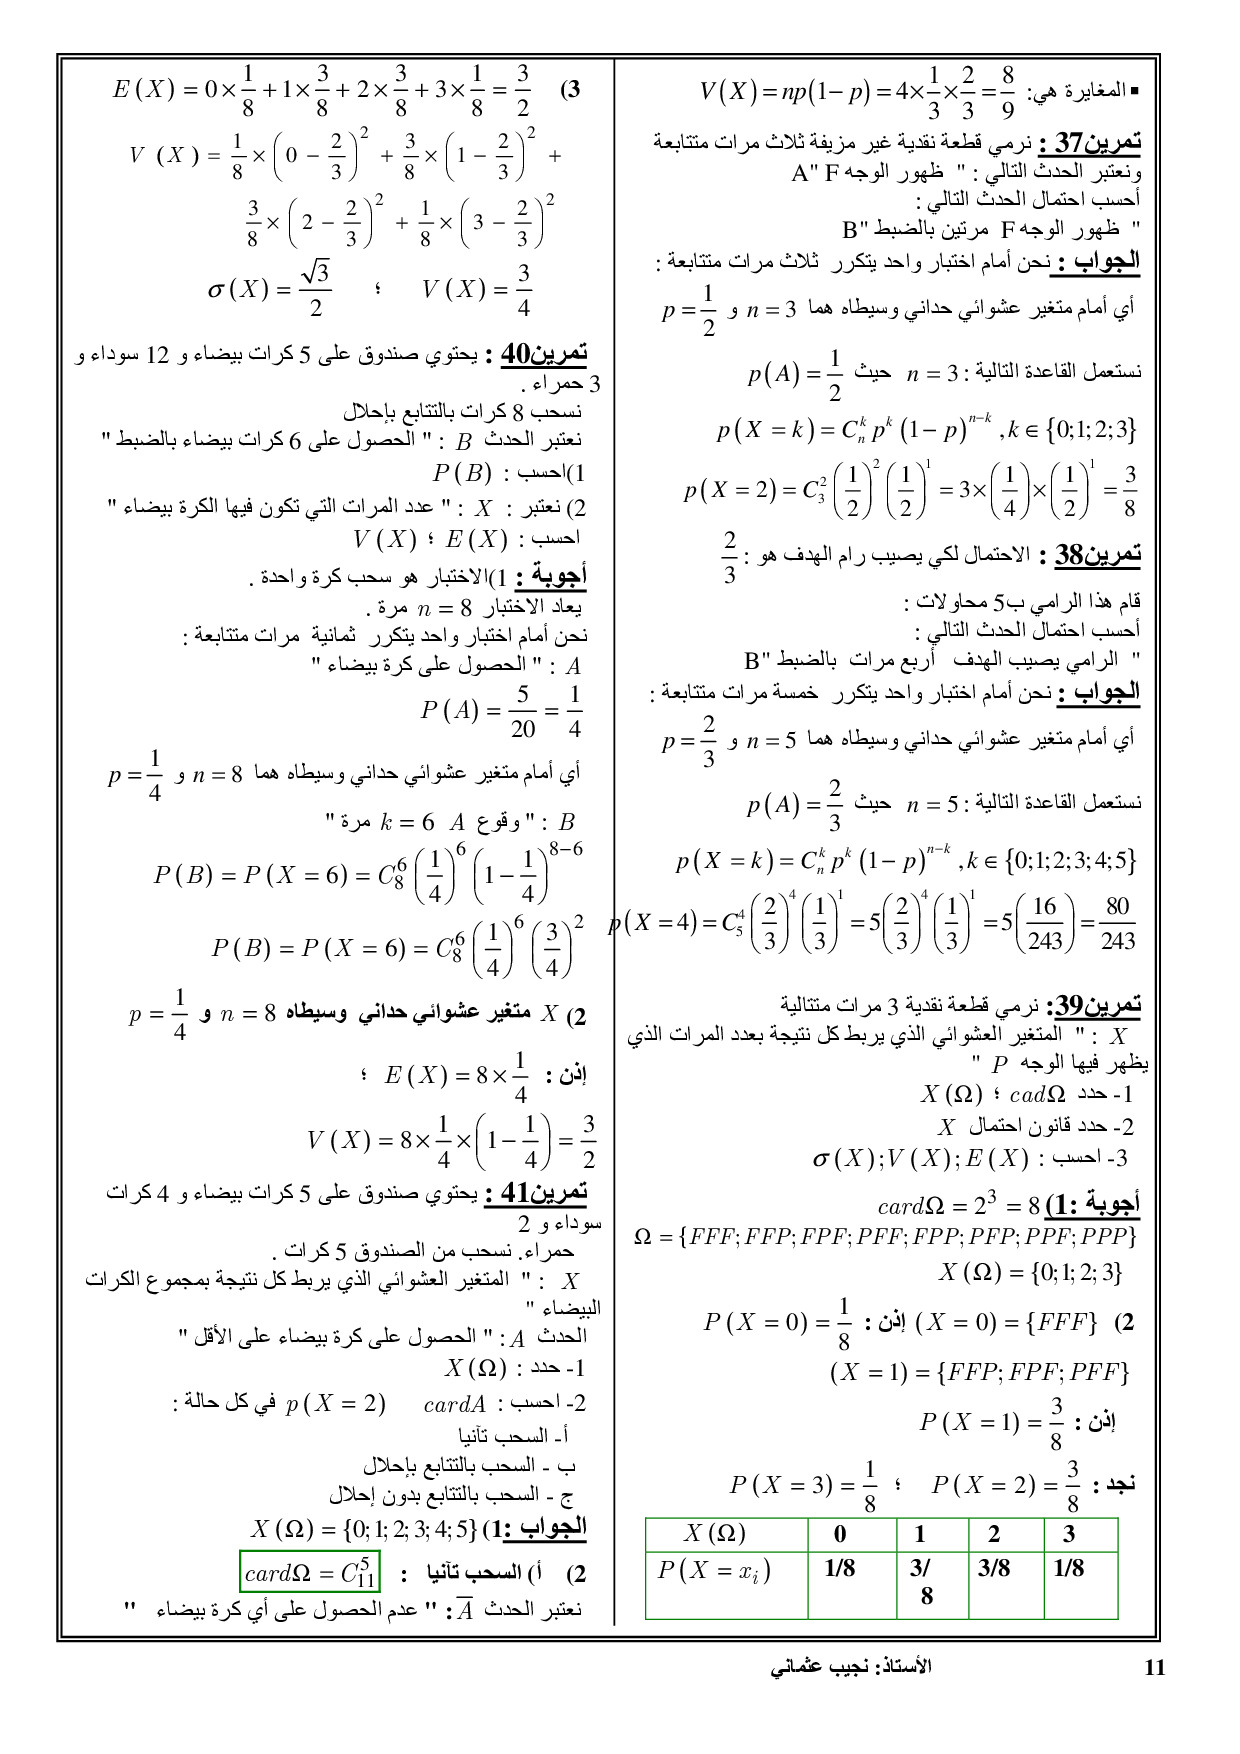 ▪ المغايرة هي: V(X) = np(1−p) = 4×1/3×2/3 = 8/9
تمرين37 : نرمي قطعة نقدية غير مزيفة ثلاث مرات متتابعة
ونعتبر الحدث التالي : " ظهور الوجه F "A
أحسب احتمال الحدث التالي :
" ظهور الوجه F مرتين بالضبط "B
الجواب : نحن أمام اختبار واحد يتكرر ثلاث مرات متتابعة :
أي أمام متغير عشوائي حداني وسيطاه هما n = 3 و p = 1/2
نستعمل القاعدة التالية : n = 3 حيث p(A) = 1/2
p(X = k) = C_n^k p^k (1−p)^{n−k} , k ∈ {0;1;2;3}
p(X = 2) = C_3^2 (1/2)^2 (1/2)^1 = 3×(1/4)×(1/2)^1 = 3/8
تمرين38 : الاحتمال لكي يصيب رام الهدف هو : 2/3
قام هذا الرامي ب5 محاولات :
أحسب احتمال الحدث التالي :
" الرامي يصيب الهدف أربع مرات بالضبط "B
الجواب : نحن أمام اختبار واحد يتكرر خمسة مرات متتابعة :
أي أمام متغير عشوائي حداني وسيطاه هما n = 5 و p = 2/3
نستعمل القاعدة التالية : n = 5 حيث p(A) = 2/3
p(X = k) = C_n^k p^k (1−p)^{n−k} , k ∈ {0;1;2;3;4;5}
p(X = 4) = C_5^4 (2/3)^4 (1/3)^1 = 5(2/3)^4 (1/3)^1 = 5(16/243) = 80/243
تمرين39: نرمي قطعة نقدية 3 مرات متتالية
X : " المتغير العشوائي الذي يربط كل نتيجة بعدد المرات الذي
يظهر فيها الوجه P "
1- حدد cadΩ ؛ X(Ω)
2- حدد قانون احتمال X
3- احسب : σ(X);V(X);E(X)
أجوبة :1) cardΩ = 2^3 = 8
Ω = {FFF;FFP;FPF;PFF;FPP;PFP;PPF;PPP}
X(Ω) = {0;1;2;3}
2) (X = 0) = {FFF} إذن : P(X = 0) = 1/8
(X = 1) = {FFP;FPF;PFF}
إذن : P(X = 1) = 3/8
نجد : P(X = 2) = 3/8 ؛ P(X = 3) = 1/8
X(Ω) 0 1 2 3
P(X = x_i) 1/8 3/8 3/8 1/8
3) E(X) = 0×1/8 + 1×3/8 + 2×3/8 + 3×1/8 = 3/2
V(X) = 1/8×(0 − 2/3)^2 + 3/8×(1 − 2/3)^2 +
3/8×(2 − 2/3)^2 + 1/8×(3 − 2/3)^2
V(X) = 3/4 ؛ σ(X) = √3/2
تمرين40 : يحتوي صندوق على 5 كرات بيضاء و 12 سوداء و
3 حمراء .
نسحب 8 كرات بالتتابع بإحلال
نعتبر الحدث B : " الحصول على 6 كرات بيضاء بالضبط "
1)احسب : P(B)
2) نعتبر : X : " عدد المرات التي تكون فيها الكرة بيضاء "
احسب : E(X) ؛ V(X)
أجوبة : 1)الاختبار هو سحب كرة واحدة .
يعاد الاختبار n = 8 مرة .
نحن أمام اختبار واحد يتكرر ثمانية مرات متتابعة :
A : " الحصول على كرة بيضاء "
P(A) = 5/20 = 1/4
أي أمام متغير عشوائي حداني وسيطاه هما n = 8 و p = 1/4
B : " وقوع A k = 6 مرة "
P(B) = P(X = 6) = C_8^6 (1/4)^6 (1 − 1/4)^{8−6}
P(B) = P(X = 6) = C_8^6 (1/4)^6 (3/4)^2
2) X متغير عشوائي حداني وسيطاه n = 8 و p = 1/4
إذن : E(X) = 8×1/4 ؛
V(X) = 8×1/4×(1 − 1/4) = 3/2
تمرين41 : يحتوي صندوق على 5 كرات بيضاء و 4 كرات
سوداء و 2
حمراء. نسحب من الصندوق 5 كرات .
X : " المتغير العشوائي الذي يربط كل نتيجة بمجموع الكرات
البيضاء "
الحدث A : " الحصول على كرة بيضاء على الأقل "
1- حدد : X(Ω)
2- احسب : cardA p(X = 2) في كل حالة :
أ- السحب تآنيا
ب - السحب بالتتابع بإحلال
ج - السحب بالتتابع بدون إحلال
الجواب :1) X(Ω) = {0;1;2;3;4;5}
2) أ) السحب تآنيا : cardΩ = C_11^5
نعتبر الحدث A̅ : " عدم الحصول على أي كرة بيضاء "
الأستاذ: نجيب عثماني 11